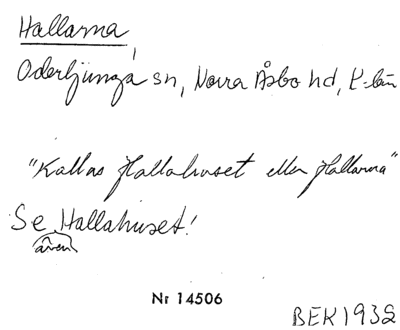 Hallarna,
Oderljunga sn, Norra Åsbo hd, K-län
"Kallas Hallahuset eller Hallarna"
Se även Hallahuset!
Nr 14506
BEK 1932